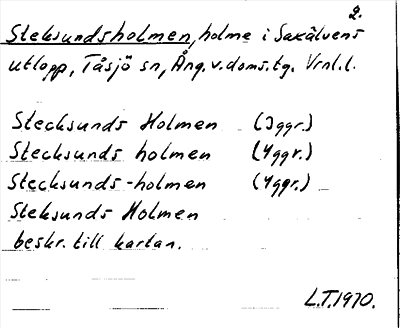 2.
Steksundsholmen, holme i Saxälvens
utlopp, Tåsjö sn, Ång. v. doms. tg. Vrnl. l.
Stecksunds Holmen (3ggr.)
Stecksunds holmen (4ggr.)
Stecksunds-holmen (4ggr.)
Steksunds Holmen
beskr. till kartan.
L.T. 1970.